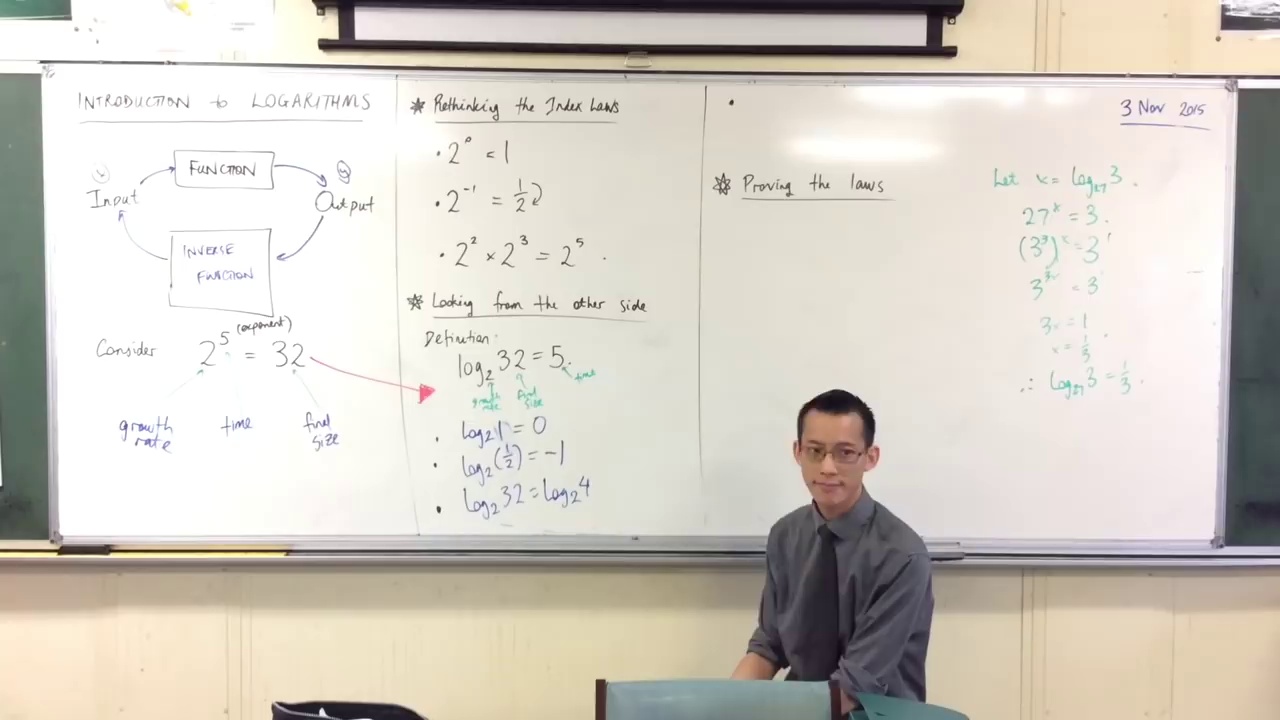 INTRODUCTION to LOGARITHMS
FUNCTION
Input
Output
INVERSE
FUNCTION
Consider 2^5 (exponent) = 32
growth rate
time
final size
* Rethinking the Index Laws
· 2^0 = 1
· 2^-1 = 1/2
· 2^2 × 2^3 = 2^5
* Looking from the other side
Definition:
log_2 32 = 5.
growth rate
final size
time
· log_2 1 = 0
· log_2 (1/2) = -1
· log_2 32 = log_2 4
3 Nov 2015
* Proving the laws
Let x = log_27 3.
27^x = 3.
(3^3)^x = 3^1
3^3x = 3^1
3x = 1
x = 1/3
∴ log_27 3 = 1/3.